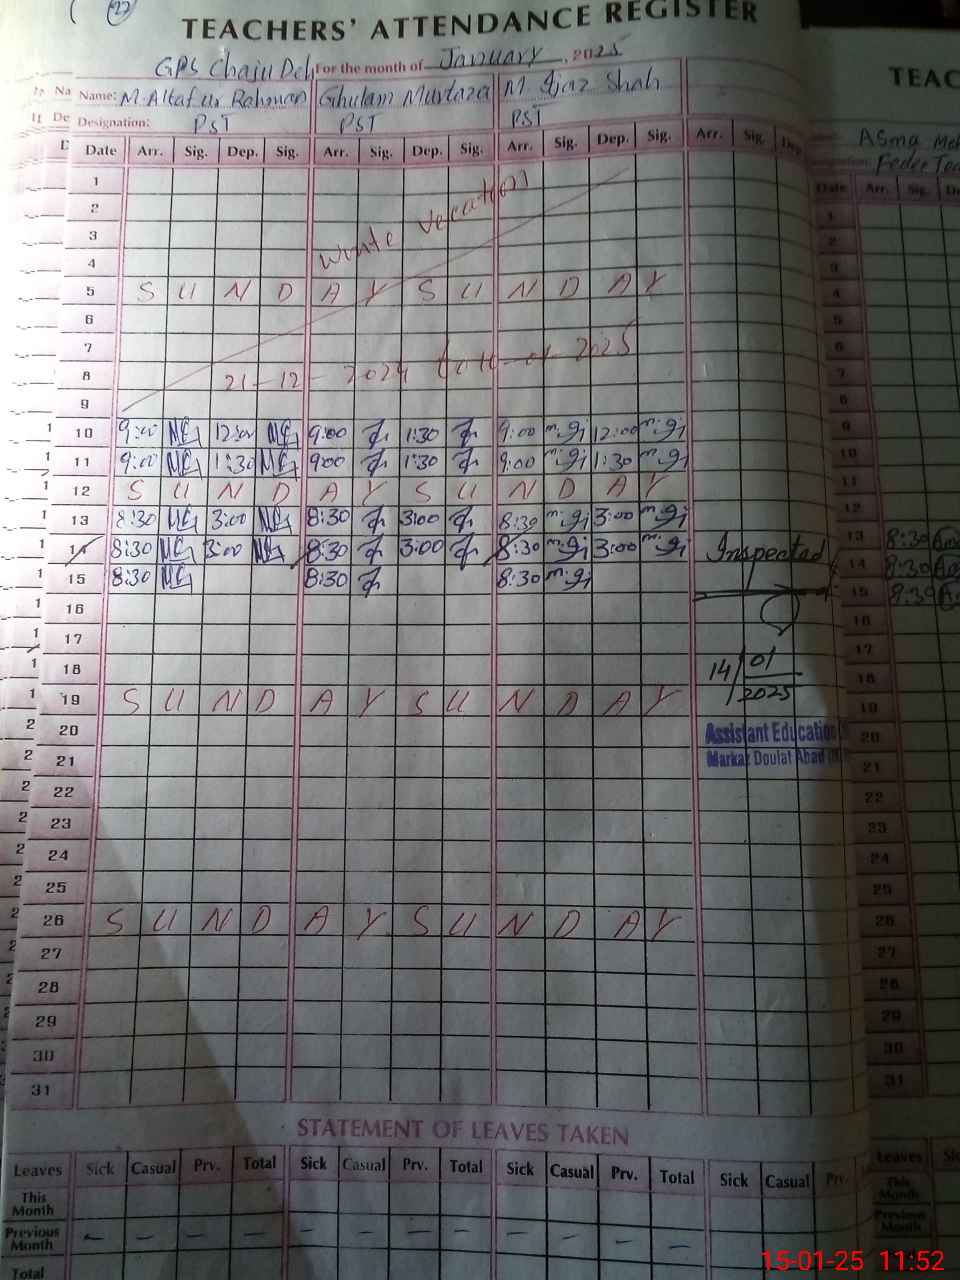 22
TEACHERS' ATTENDANCE REGISTER
GPS Chaju Deh For the month of January, 2025
Name: M. Altaf ur Rahman Ghulam Murtaza M. Ijaz Shah
Designation: PST PST PST
Date Arr. Sig. Dep. Sig. Arr. Sig. Dep. Sig. Arr. Sig. Dep. Sig. Arr. Sig. Dep
1
2
3
winte vecation
4
5 S U N D A Y S U N D A Y
6
7
8 21-12-2024 to 10-01-2025
9
10 9:00 12:00 9:00 1:30 9:00 12:00
11 9:00 1:30 9:00 1:30 9:00 1:30
12 S U N D A Y S U N D A Y
13 8:30 3:00 8:30 3:00 8:30 3:00
14 8:30 3:00 8:30 3:00 8:30 3:00 Inspected
15 8:30 8:30 8:30
16
17
18 14/01
19 S U N D A Y S U N D A Y 2025
20 Assistant Education
21 Markaz Doulat Abad
22
23
24
25
26 S U N D A Y S U N D A Y
27
28
29
30
31
STATEMENT OF LEAVES TAKEN
Leaves Sick Casual Prv. Total Sick Casual Prv. Total Sick Casual Prv. Total Sick Casual Prv.
This Month
Previous Month – – – – – – – – – – – –
Total
TEAC
Asma
Date Arr. Sig.
1
2
3
4
5
6
7
8
9
10
11
12
13 8:30
14 8:30
15 8:30
16
17
18
19
20
21
22
23
24
25
26
27
28
29
30
31
Leaves
This Month
Previous Month
15-01-25 11:52